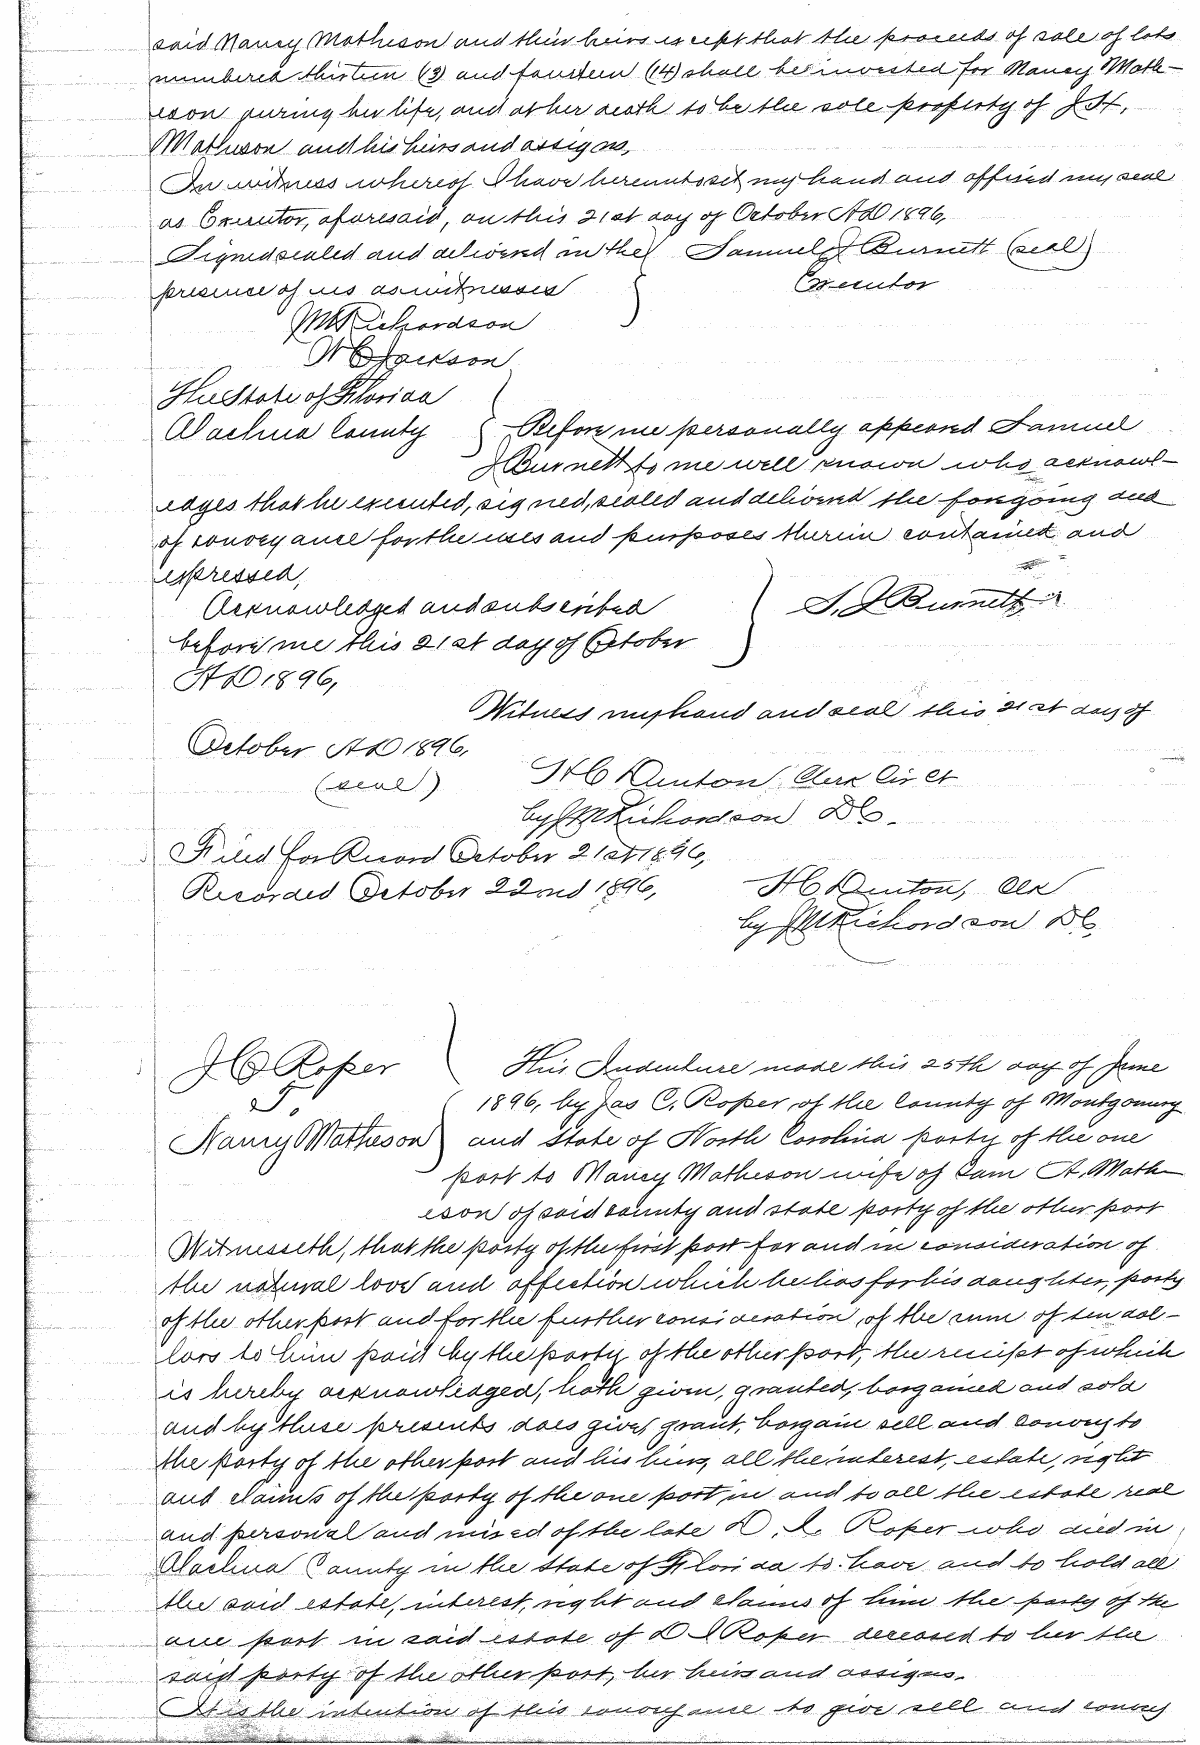 said Nancy Matheson and their heirs except that the proceeds of sale of lots
numbered thirteen (13) and fourteen (14) shall be invested for Nancy Math-
eson during her life, and at her death to be the sole property of J. H.
Matheson and his heirs and assigns,
In witness whereof I have hereunto set my hand and affixed my seal
as Executor, aforesaid, on this 21st day of October AD 1896,
Signed sealed and delivered in the Samuel J Burnett (seal)
presence of us as witnesses Executor
JM Richardson
W C Jackson
The State of Florida
Alachua County Before me personally appeared Samuel
J Burnett to me well known who acknowl-
edges that he executed, signed, sealed and delivered the forgoing deed
of conveyance for the uses and purposes therein contained and
expressed,
Acknowledged and subscribed S. J Burnett
before me this 21st day of October
AD 1896,
Witness my hand and seal this 21st day of
October AD 1896,
H C Denton, Clerk Cir Ct
(seal)
by JM Richardson DC.
Filed for Record October 21st 1896,
Recorded October 22nd 1896, H C Denton, Clk
by JM Richardson DC.
J C Roper This Indenture made this 25th day of June
To 1896, by Jas C. Roper of the County of Montgomery
Nancy Matheson and State of North Carolina party of the one
part to Nancy Matheson wife of Sam A. Math-
eson of said county and state party of the other part
Witnesseth, that the party of the first part for and in consideration of
the natural love and affection which he has for his daughter, party
of the other part and for the further consideration of the sum of ten dol-
lars to him paid by the party of the other part, the receipt of which
is hereby acknowledged, hath given, granted, bargained and sold
and by these presents does give, grant, bargain sell and convey to
the party of the other part and his heirs, all the interest, estate, right
and claims of the party of the one part in and to all the estate real
and personal and mixed of the late D. I. Roper who died in
Alachua County in the State of Florida to have and to hold all
the said estate, interest, right and claims of him the party of the
one part in said estate of D I Roper deceased to her the
said party of the other part, her heirs and assigns.
It is the intention of this conveyance to give sell and convey